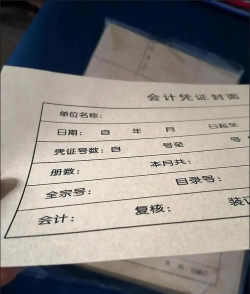 会计凭证封面
单位名称：
日期： 自 年 月 日起至
凭证号数：自 号至 号
册数： 本月共：
全宗号： 目录号：
会计： 复核： 装订